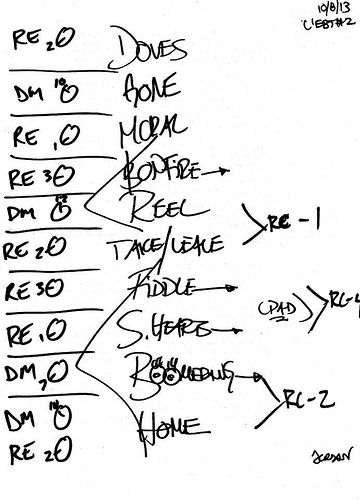 10/8/13
L'EBT#2
RE 2 DOVES
DM 10 BONE
RE 1 MORAL
RE 3 BONFIRE →
DM REEL
RE-1
RE 2 TAKE/LEAVE
RE 3 FIDDLE →
(PAD)
RE 1 S.HEARS →
DM 2 BOOMERANG →
RC-2
DM 10 HOME
RE 2
JORDAN